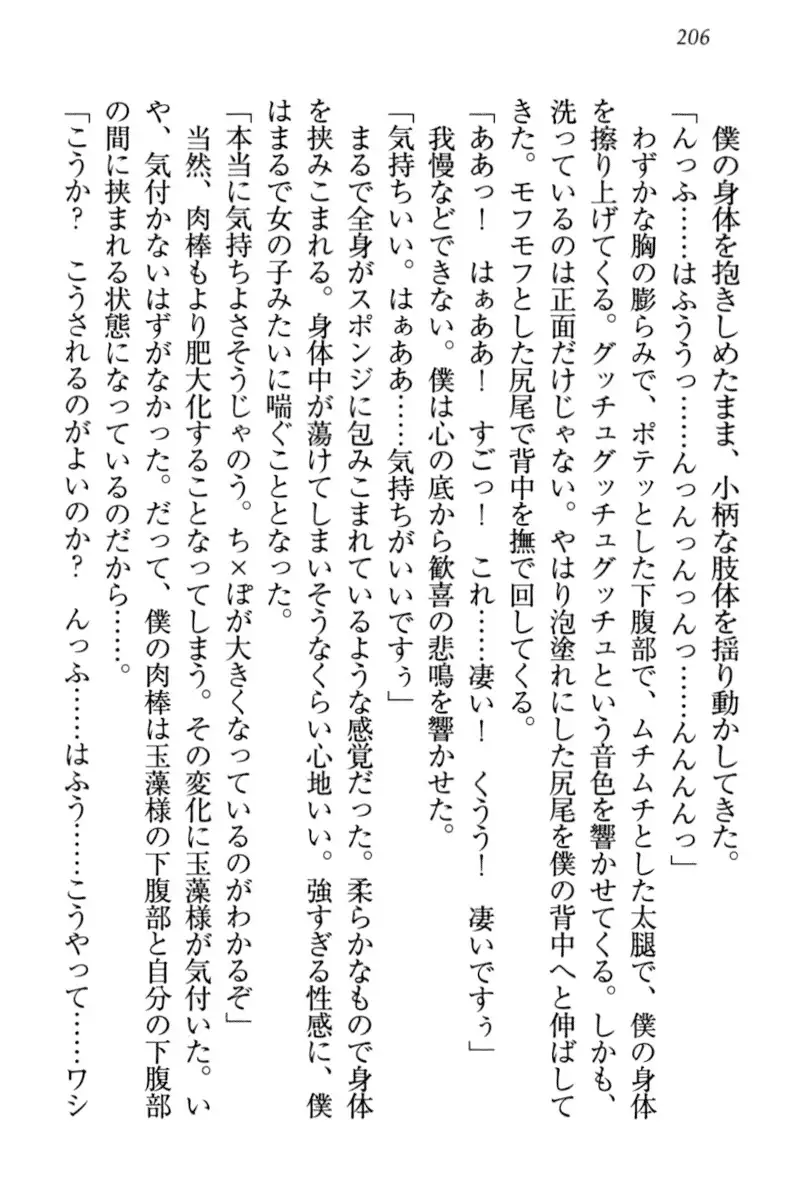 206
僕の身体を抱きしめたまま、小柄な肢体を揺り動かしてきた。
「んっふ……はふううっ……んっんっんっんっ……んんんんっ」
わずかな胸の膨らみで、ポテッとした下腹部で、ムチムチとした太腿で、僕の身体
を擦り上げてくる。グッチュグッチュグッチュという音色を響かせてくる。しかも、
洗っているのは正面だけじゃない。やはり泡塗れにした尻尾を僕の背中へと伸ばして
きた。モフモフとした尻尾で背中を撫で回してくる。
「ああっ！　はぁああ！　すごっ！　これ……凄い！　くうう！　凄いですぅ」
我慢などできない。僕は心の底から歓喜の悲鳴を響かせた。
「気持ちいい。はぁああ……気持ちがいいですぅ」
まるで全身がスポンジに包みこまれているような感覚だった。柔らかなもので身体
を挟みこまれる。身体中が蕩けてしまいそうなくらい心地いい。強すぎる性感に、僕
はまるで女の子みたいに喘ぐこととなった。
「本当に気持ちよさそうじゃのう。ち×ぽが大きくなっているのがわかるぞ」
当然、肉棒もより肥大化することなってしまう。その変化に玉藻様が気付いた。い
や、気付かないはずがなかった。だって、僕の肉棒は玉藻様の下腹部と自分の下腹部
の間に挟まれる状態になっているのだから……。
「こうか？　こうされるのがよいのか？　んっふ……はふう……こうやって……ワシ